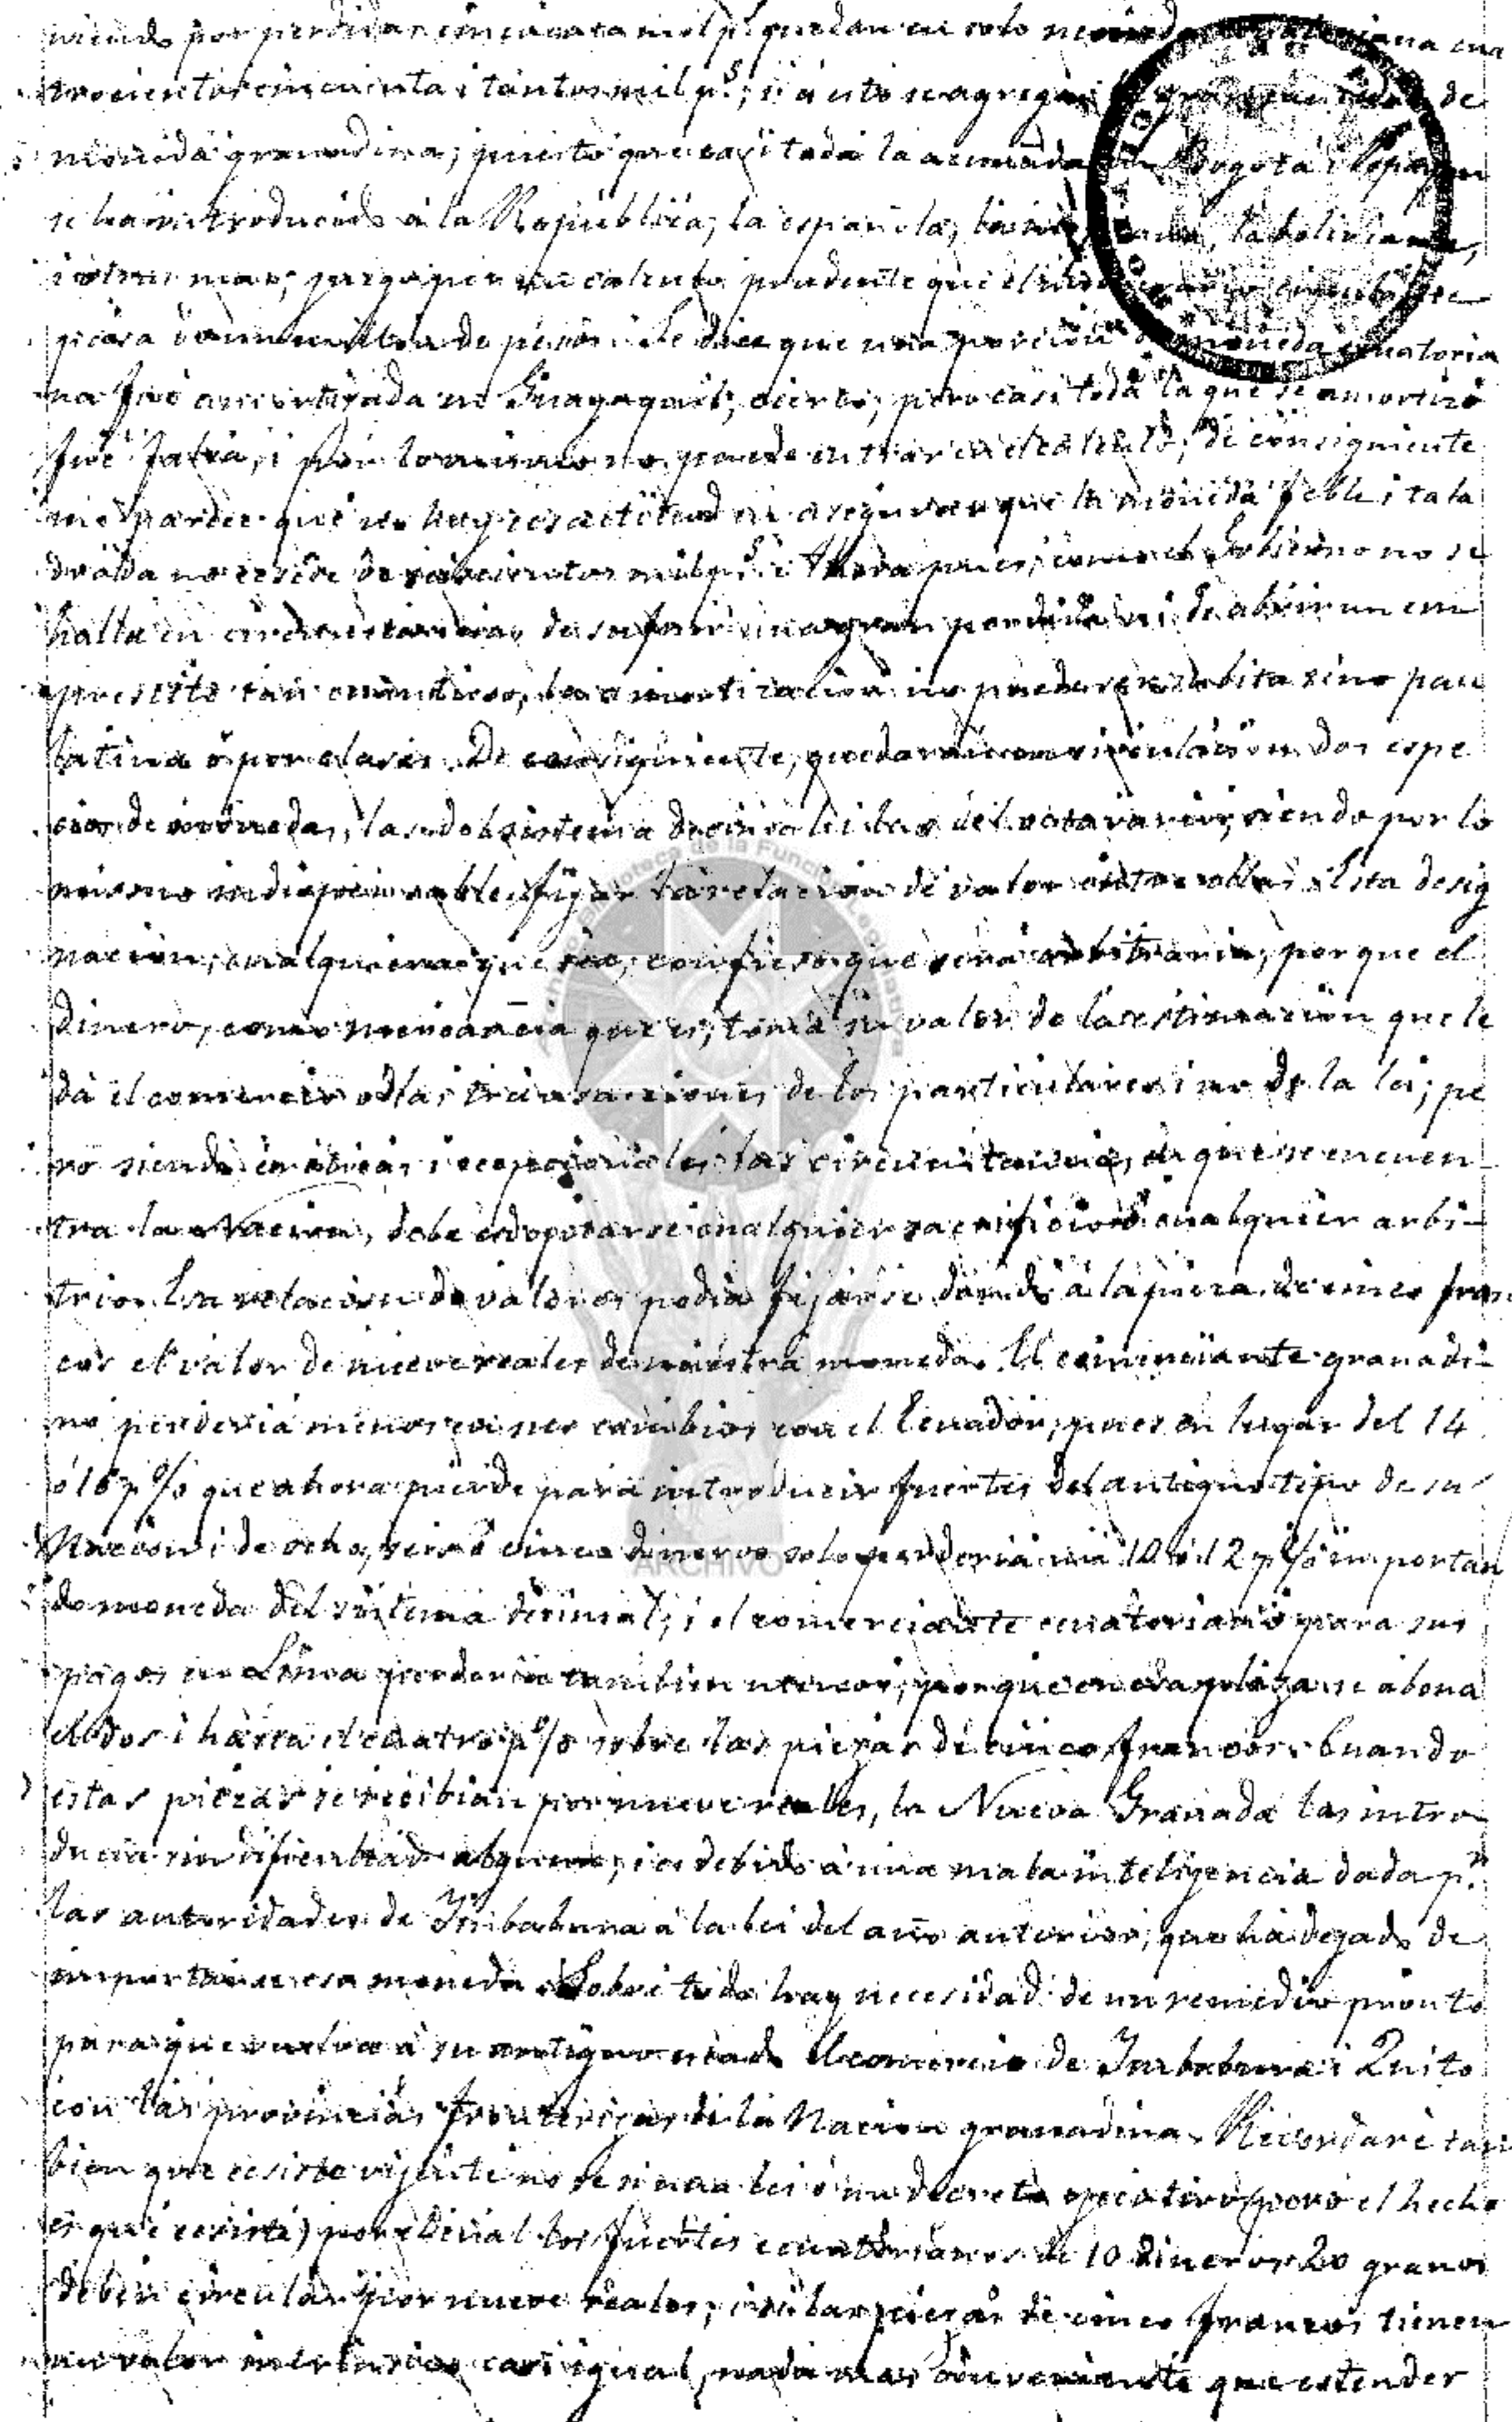 niendo por perdidas cincuenta mil ps. quedan en solo moneda ecuatoriana cua
trocientos cincuenta i tantos mil ps.; si á esto se agrega la gran cantidad de
moneda granadina; puesto que casi toda la acuñada en Bogota i Popayan
se ha introducido á la República; la española, la boliviana,
i otras mas; juzgo por un calculo prudente que el numerario circulante
pasara de un millon de pesos. Se dice que una porcion de moneda ecuatoria
na fué amortizada en Guayaquil; cierto; pero casi toda la que se amortizó
fué falsa, i por lo mismo no puede entrar en el calculo; de consiguiente
me parece que no hay esactitud en asegurar que la moneda feble i tala
drada no escede de seiscientos mil ps. Ahora pues, como el Gobierno no se
halla en circunstancias de sufrir una gran perdida ni de abrir un em
prestito tan cuantioso, la amortizacion no puede ser subita sino pau
latina ó por clases. De consiguiente, quedarán en circulacion dos espe
cies de moneda, las del sistema decimal i las del octavario, siendo por lo
mismo indispensable fijar la relacion de valor entre ellas. Esta desig
nacion, cualquiera que sea, confieso que será arbitraria, porque el
dinero, como mercancia que es, toma su valor de la estimacion que le
dá el comercio o las transacciones de los particulares i no de la lei; pe
ro siendo criticas i escepcionales las circunstancias en que se encuen
tra la Nacion, debe adoptarse cualquier sacrificio ó cualquier arbi-
trio. Esa relacion de valores podia fijarse dando á la pieza de cinco fran
cos el valor de nueve reales de nuestra moneda. El comerciante granadi-
no perderia menos en sus cambios con el Ecuador, pues en lugar del 14
ó 16 p% que ahora pierde para introducir fuertes del antiguo tipo de su
Nacion i de ocho, seis ó cinco dineros solo perderia un 10 ó 12 p% importan
do moneda del sistema decimal; i el comerciante ecuatoriano para sus
pagos en Lima perderia tambien menos, porque en esa plaza se abona
el dos i hasta el cuatro p% sobre las piezas de cinco francos. Cuando
estas piezas se recibian por nueve reales, la Nueva Granada las intro
ducia sin dificultad alguna, i es debido á una mala inteligencia dada pr.
las autoridades de Imbabura á la lei del año anterior, que ha dejado de
importarse esa moneda. Sobre todo hay necesidad de un remedio pronto
para que vuelva á su antiguo estado el comercio de Imbabura i Quito
con las provincias fronterizas de la Nacion granadina. Recordaré tam
bien que esiste vijente no se si una lei ó un decreto ejecutivo (pero el hecho
es que esiste) por el cual los fuertes ecuatorianos de 10 dineros 20 granos
deben circular por nueve reales; i si las piezas de cinco francos tienen
un valor intrinsico casi igual, nada mas conveniente que estender
ARCHIVO